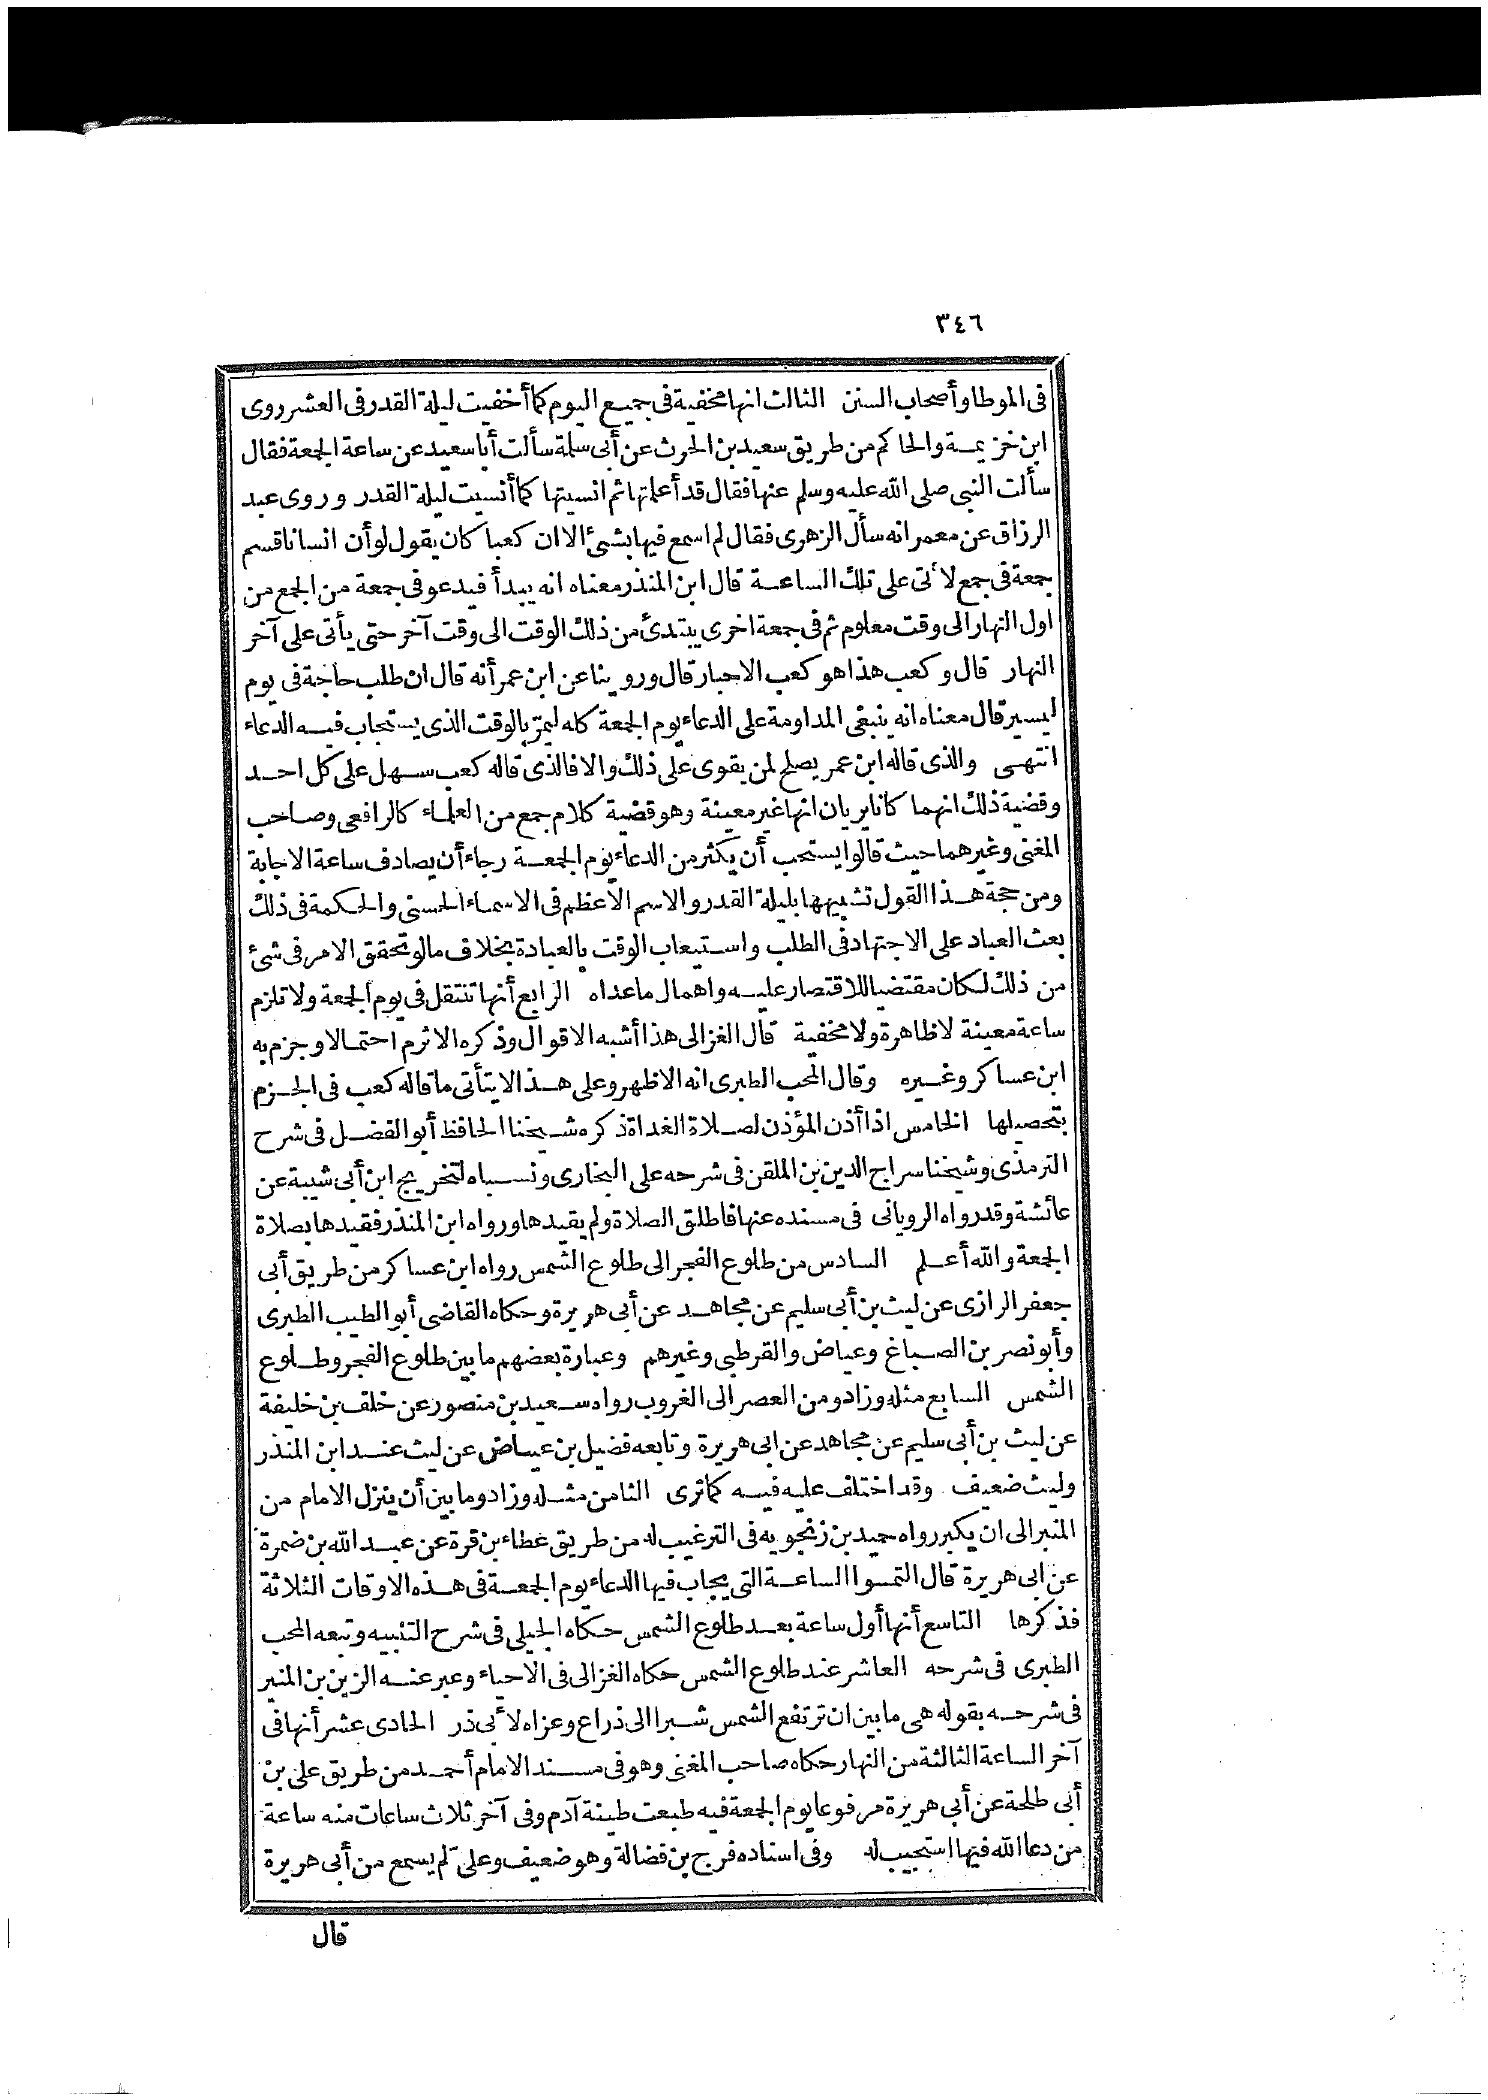 ٣٤٦
فى الموطا وأصحاب السنن الثالث انها مخفية فى جميع اليوم كما أخفيت ليلة القدر فى العشر روى
ابن خزيمة والحاكم من طريق سعيد بن الحرث عن أبى سلمة سألت أبا سعيد عن ساعة الجمعة فقال
سألت النبى صلى الله عليه وسلم عنها فقال قد أعلمتها ثم انسيتها كما أنسيت ليلة القدر وروى عبد
الرزاق عن معمر انه سأل الزهرى فقال لم اسمع فيها بشئ الا ان كعبا كان يقول لو أن انسانا قسم
جمعة فى جمع لأتى على تلك الساعة قال ابن المنذر معناه انه يبدأ فيدعو فى جمعة من الجمع من
اول النهار الى وقت معلوم ثم فى جمعة اخرى يبتدئ من ذلك الوقت الى وقت آخر حتى يأتى على آخر
النهار قال وكعب هذا هو كعب الاحبار قال وروينا عن ابن عمر أنه قال ان طلب حاجة فى يوم
ليسير قال معناه انه ينبغى المداومة على الدعاء يوم الجمعة كله ليمرّ بالوقت الذى يستجاب فيه الدعاء
انتهى والذى قاله ابن عمر يصلح لمن يقوى على ذلك والا فالذى قاله كعب سهل على كل احد
وقضية ذلك انهما كانا يريان انها غير معينة وهو قضية كلام جمع من العلماء كالرافعى وصاحب
المغنى وغيرهما حيث قالوا يستحب أن يكثر من الدعاء يوم الجمعة رجاء أن يصادف ساعة الاجابة
ومن حجة هذا القول تشبيهها بليلة القدر والاسم الأعظم فى الاسماء الحسنى والحكمة فى ذلك
بعث العباد على الاجتهاد فى الطلب واستيعاب الوقت بالعبادة بخلاف مالو تحقق الامر فى شئ
من ذلك لكان مقتضيا للاقتصار عليه واهمال ماعداه الرابع أنها تنتقل فى يوم الجمعة ولا تلزم
ساعة معينة لا ظاهرة ولا مخفية قال الغزالى هذا أشبه الاقوال وذكره الاثرم احتمالا وجزم به
ابن عساكر وغيره وقال المحب الطبرى انه الاظهر وعلى هذا لا يتأتى ما قاله كعب فى الجزم
بتحصيلها الخامس اذا أذن المؤذن لصلاة الغداة ذكره شيخنا الحافظ أبو الفضل فى شرح
الترمذى وشيخنا سراج الدين بن الملقن فى شرحه على البخارى ونسباه لتخريج ابن أبى شيبة عن
عائشة وقد رواه الرويانى فى مسنده عنها فاطلق الصلاة ولم يقيدها ورواه ابن المنذر فقيدها بصلاة
الجمعة والله أعلم السادس من طلوع الفجر الى طلوع الشمس رواه ابن عساكر من طريق أبى
جعفر الرازى عن ليث بن أبى سليم عن مجاهد عن أبى هريرة وحكاه القاضى أبو الطيب الطبرى
وأبو نصر بن الصباغ وعياض والقرطبى وغيرهم وعبارة بعضهم ما بين طلوع الفجر وطلوع
الشمس السابع مثله وزاد ومن العصر الى الغروب رواه سعيد بن منصور عن خلف بن خليفة
عن ليث بن أبى سليم عن مجاهد عن ابى هريرة وتابعه فضيل بن عياض عن ليث عند ابن المنذر
وليث ضعيف وقد اختلف عليه فيه كما ترى الثامن مثله وزاد وما بين أن ينزل الامام من
المنبر الى ان يكبر رواه حميد بن زنجويه فى الترغيب له من طريق عطاء بن قرة عن عبد الله بن ضمرة
عن ابى هريرة قال التمسوا الساعة التى يجاب فيها الدعاء يوم الجمعة فى هذه الاوقات الثلاثة
فذكرها التاسع أنها أول ساعة بعد طلوع الشمس حكاه الجيلى فى شرح التنبيه وتبعه المحب
الطبرى فى شرحه العاشر عند طلوع الشمس حكاه الغزالى فى الاحياء وعبر عنه الزين بن المنير
فى شرحه بقوله هى ما بين ان ترتفع الشمس شبرا الى ذراع وعزاه لأبى ذر الحادى عشر أنها فى
آخر الساعة الثالثة من النهار حكاه صاحب المغنى وهو فى مسند الامام أحمد من طريق على بن
أبى طلحة عن أبى هريرة مرفوعا يوم الجمعة فيه طبعت طينة آدم وفى آخر ثلاث ساعات منه ساعة
من دعا الله فيها استجيب له وفى اسناده فرج بن فضالة وهو ضعيف وعلىّ لم يسمع من أبى هريرة
قال